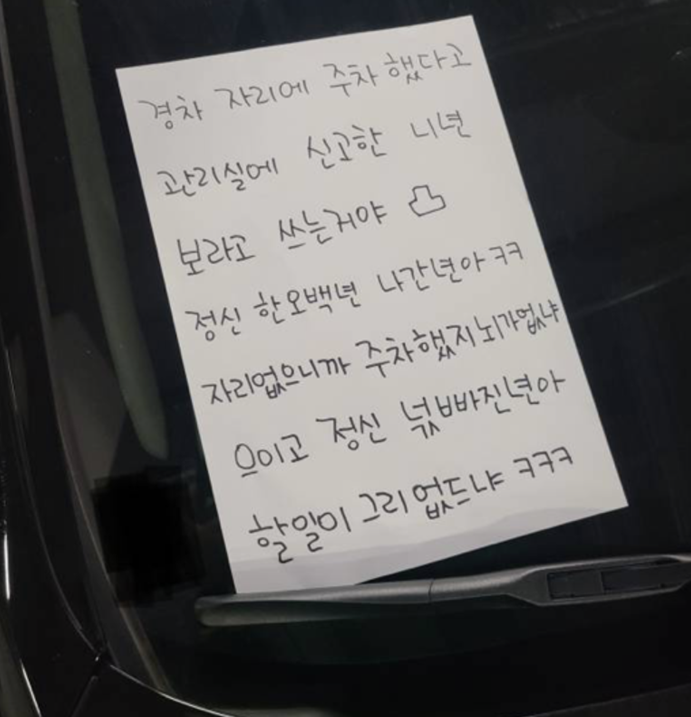 경차 자리에 주차 했다고
관리실에 신고한 니년
보라고 쓰는거야
정신 한오백년 나간년아 ㅋㅋ
자리없으니까 주차했지뇌가없냐
으이고 정신 넋빠진년아
할일이 그리 없드냐 ㅋㅋㅋ